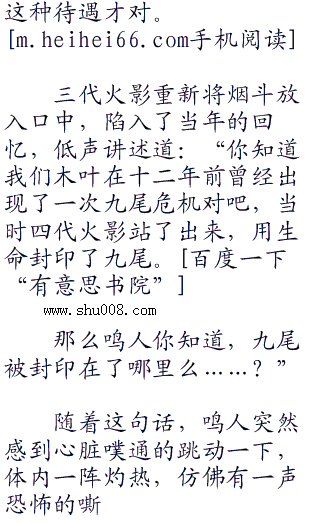 这种待遇才对。
[m.heihei66.com手机阅读]
三代火影重新将烟斗放
入口中，陷入了当年的回
忆，低声讲述道：“你知道
我们木叶在十二年前曾经出
现了一次九尾危机对吧，当
时四代火影站了出来，用生
命封印了九尾。[百度一下
“有意思书院”]
www.shu008.com
那么鸣人你知道，九尾
被封印在了哪里么……？”
随着这句话，鸣人突然
感到心脏噗通的跳动一下，
体内一阵灼热，仿佛有一声
恐怖的嘶